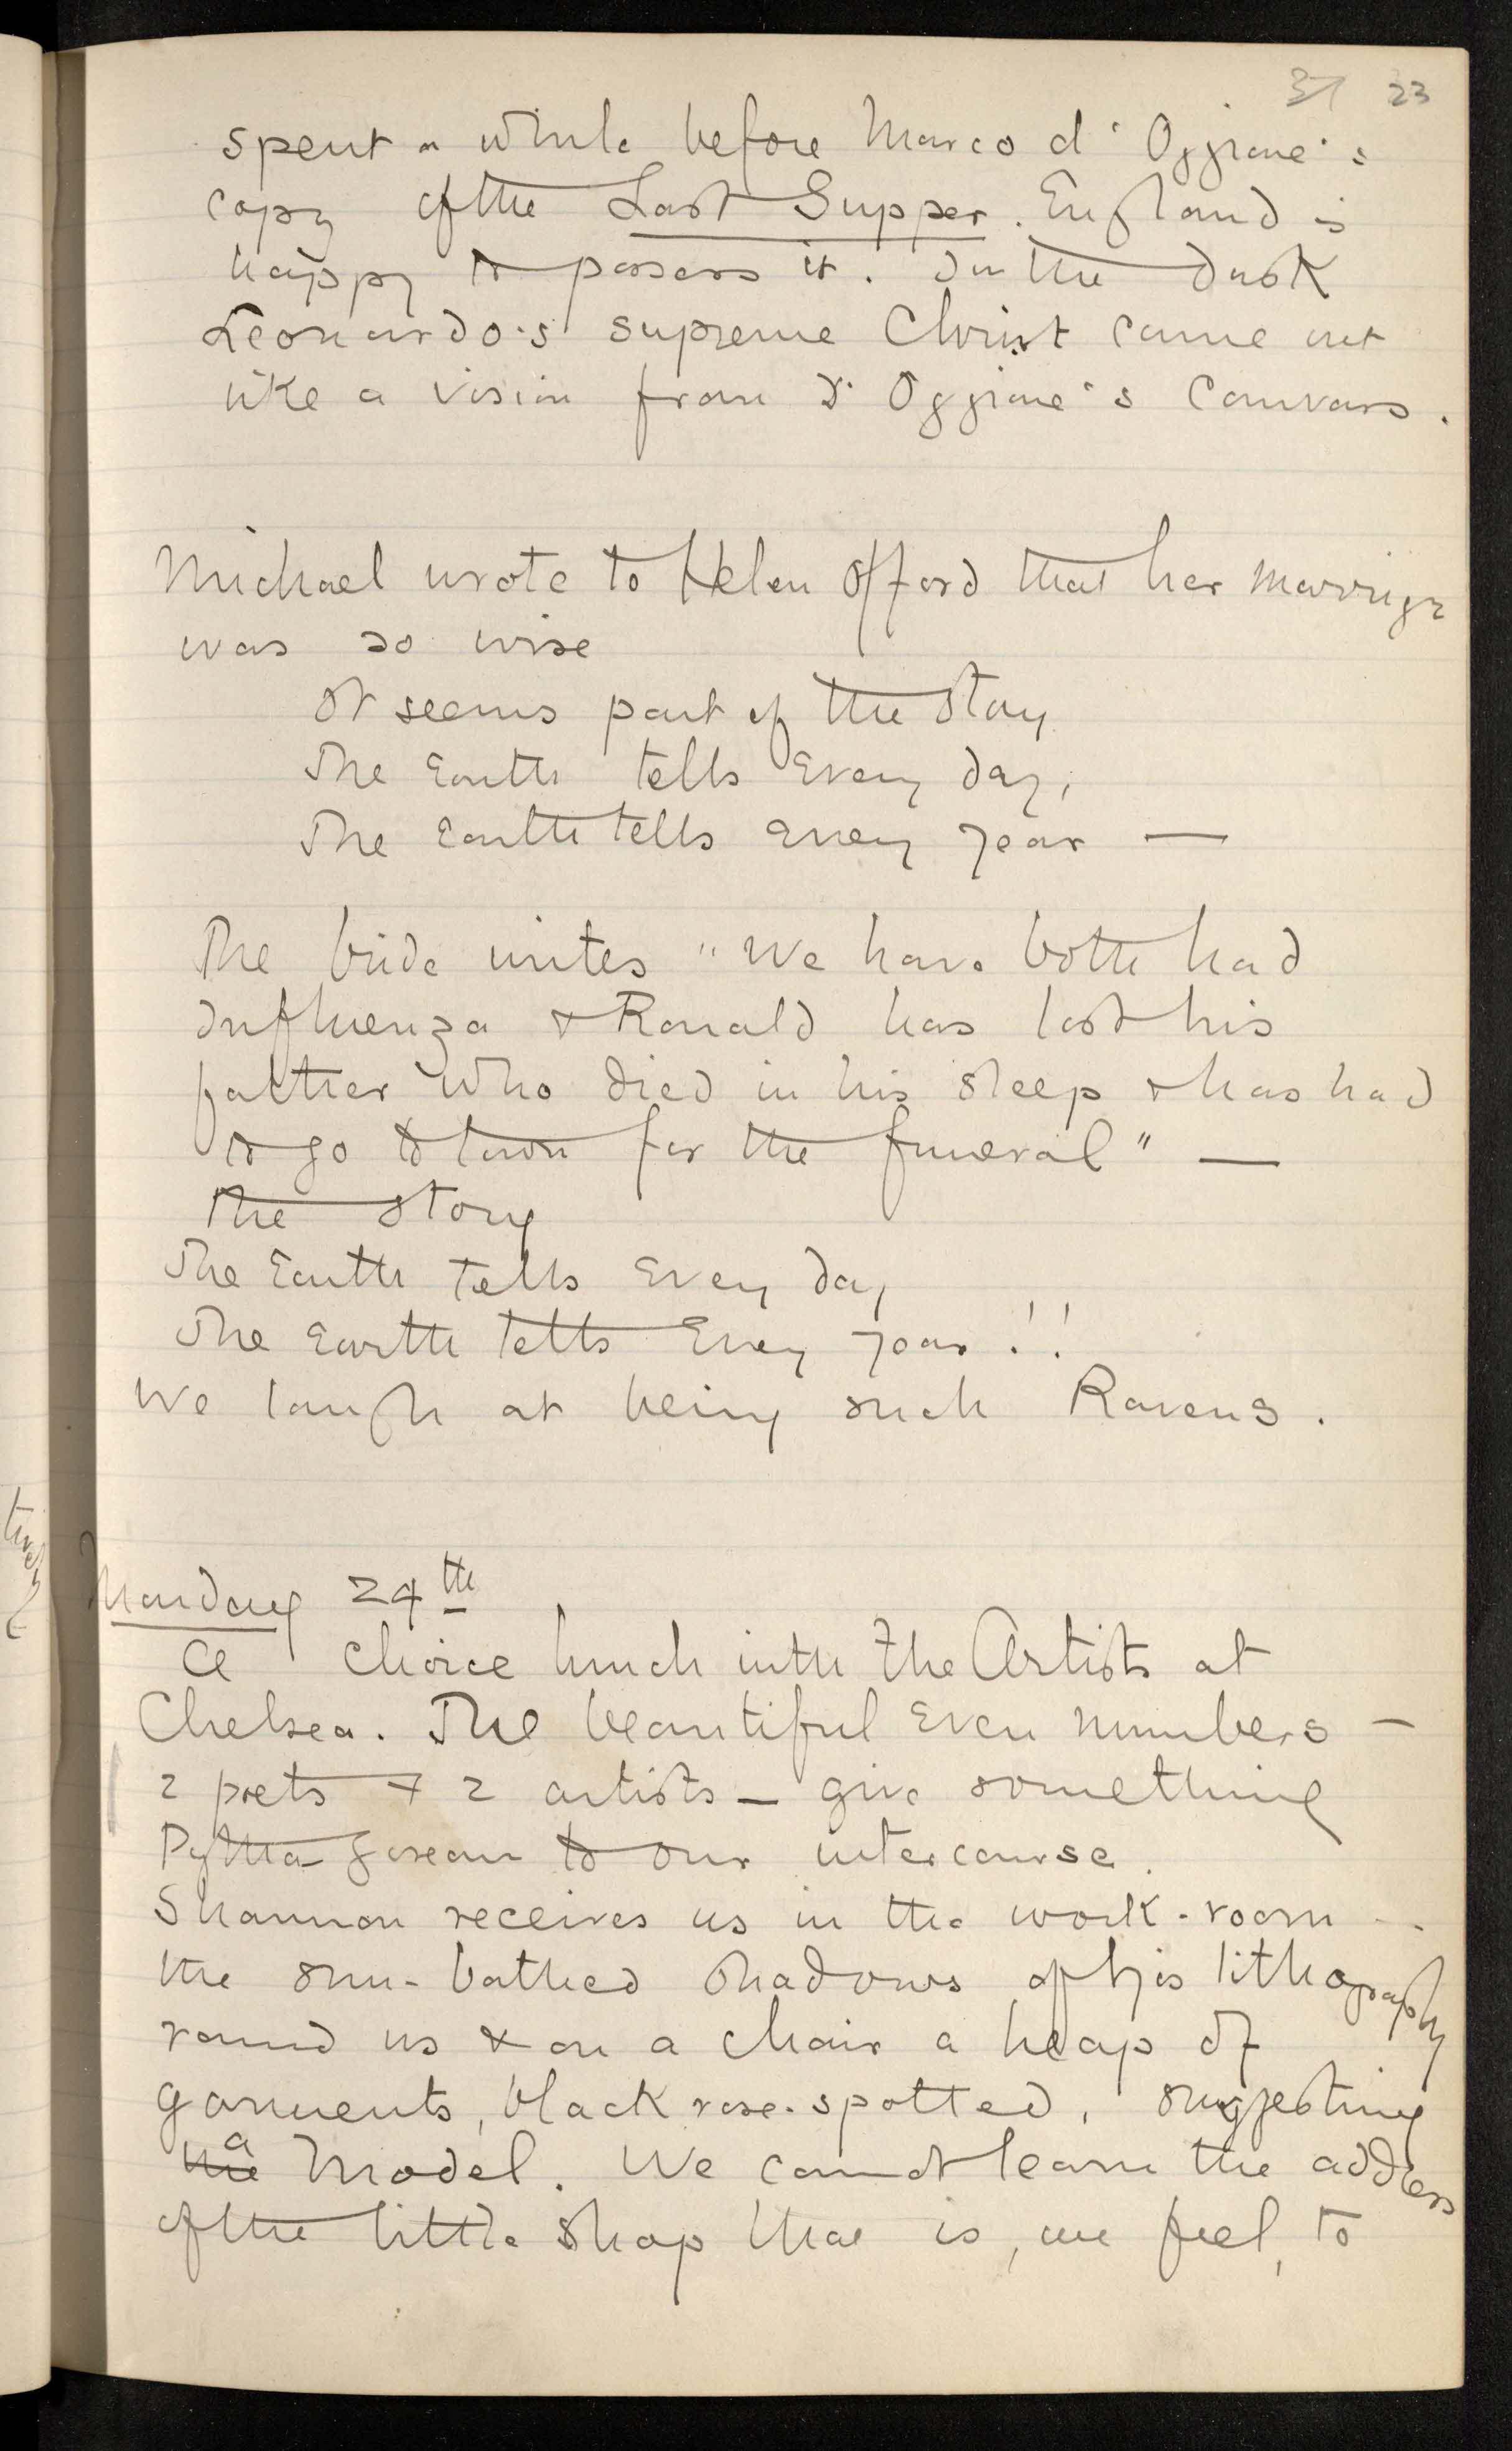 37 23
spent a while before Marco d'Oggione's
copy of the Last Supper. England is
happy to possess it. In the dusk
Leonardo's supreme Christ came out
like a vision from D'Oggione's Canvas.
Michael wrote to Helen Offord that her marriage
was so wise
It seems part of the story
The Earth tells Every day,
The Earth tells Every year —
The bride writes "We have both had
Influenza & Ronald has lost his
father who died in his sleep & has had
to go to town for the funeral" —
The story
The Earth tells Every day
The Earth tells Every year!!
We laugh at being such Ravens.
Monday 24th
A choice lunch with the Artists at
Chelsea. The beautiful Even numbers —
2 poets & 2 artists — give something
Pytha-gorean to our intercourse.
Shannon receives us in the work-room —
the sun-bathed shadows of his lithography
round us & on a chair a heap of
garments, black rose-spotted, suggesting
the a Model. We cannot learn the address
of the little shop that is, we feel, to